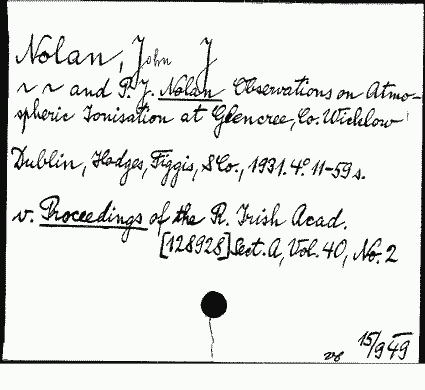 Nolan, John J
~ ~ and P. J. Nolan Observations on Atmo-
spheric Ionisation at Glencree, Co. Wicklow
Dublin, Hodges, Figgis, & Co., 1931. 4° 11-59 s.
v. Proceedings of the R. Irish Acad.
[128928] Sect. A, Vol. 40, No. 2
15/9 49